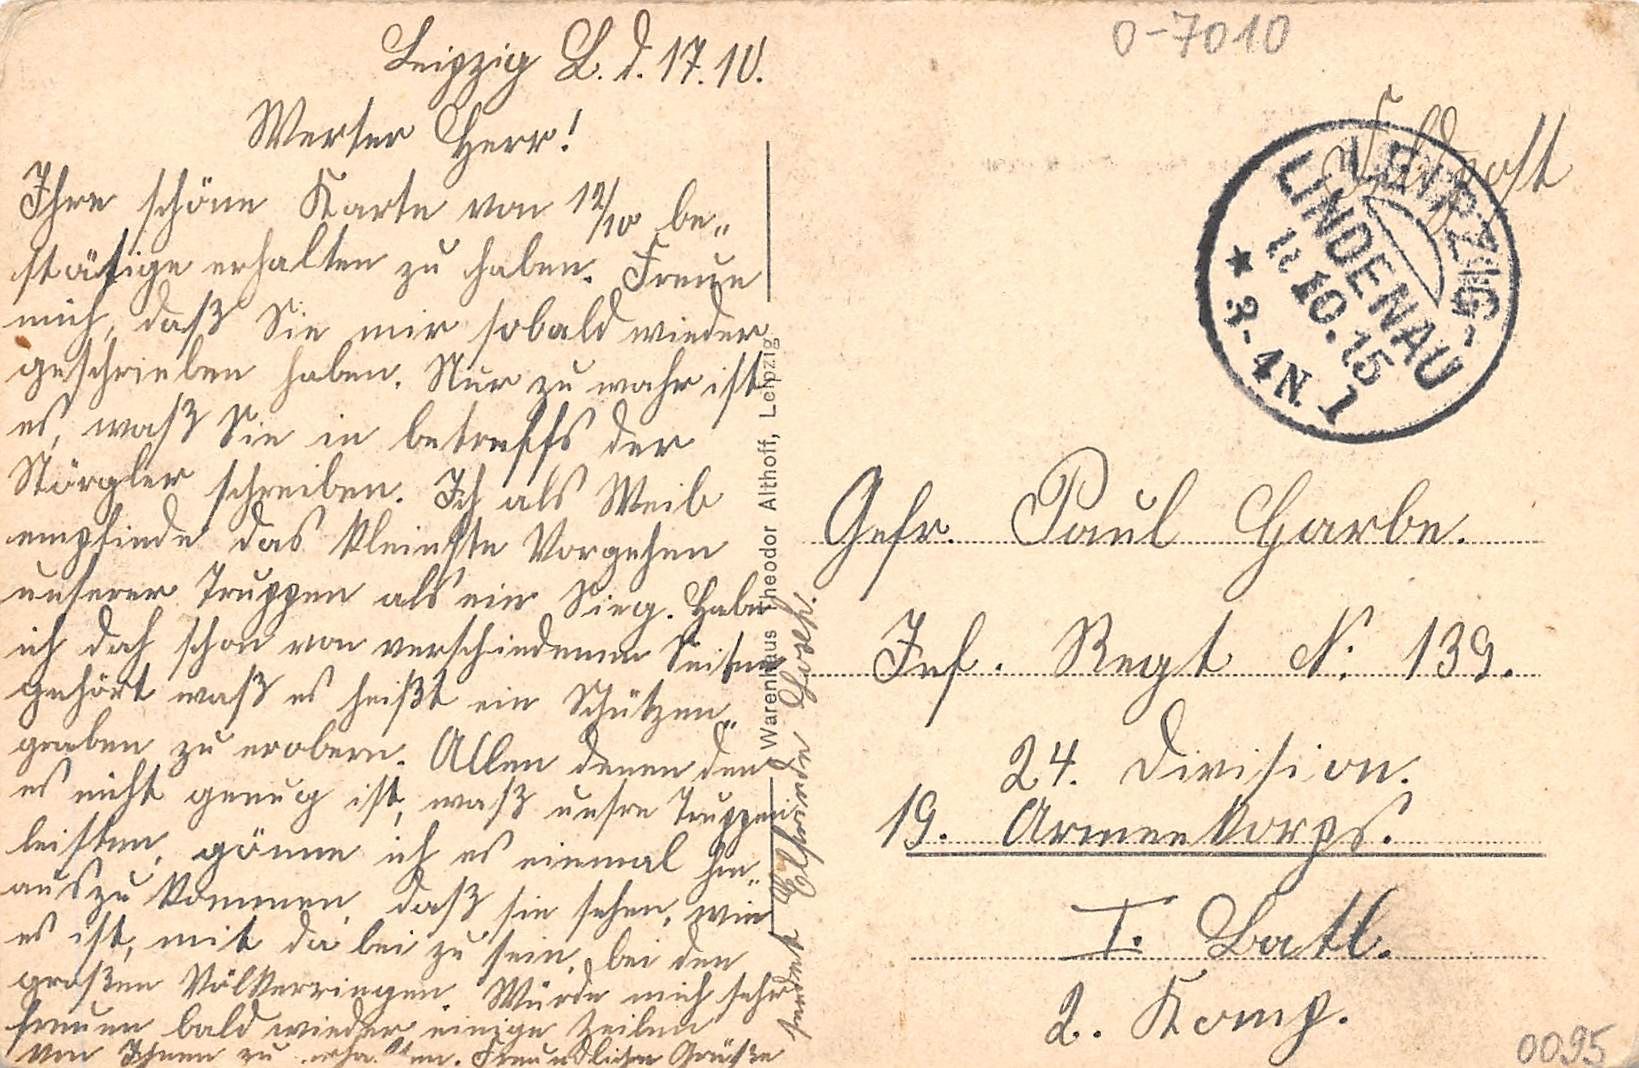 Leipzig L. d. 17.10.
Werter Herr!
Ihre schöne Karte von 12/10 be„
stätige erhalten zu haben. Freue
mich, daß Sie mir sobald wieder
geschrieben haben. Nur zu wahr ist
es, waß Sie in betreffs der
Nörgler schreiben. Ich als Weib
empfinde das kleinste Vorgehen
unserer Truppen als ein Sieg. Habe
ich doch schon von verschiedenen Seiten
gehört waß es heißt ein Schützen„
graben zu erobern. Allen denen den
es nicht genug ist, waß unsre Truppen
leisten, gönne ich es einmal hin„
auszukommen, daß sie sehen, wie
es ist, mit dabei zu sein, bei den
großen Völkerringen. Würde mich sehr
freuen bald wieder einige Zeilen
von Ihnen zu erhalten. Freundliche Grüße
sendet
Warenhaus Theodor Althoff, Leipzig
0-7010
Feldpost
LEIPZIG-
LINDENAU
10.15
★ 3-4N. 1
Gefr. Paul Harbe.
Inf. Regt N: 139.
24. Division.
19. Armeekorps.
I. Batl.
2. Komp.
0095